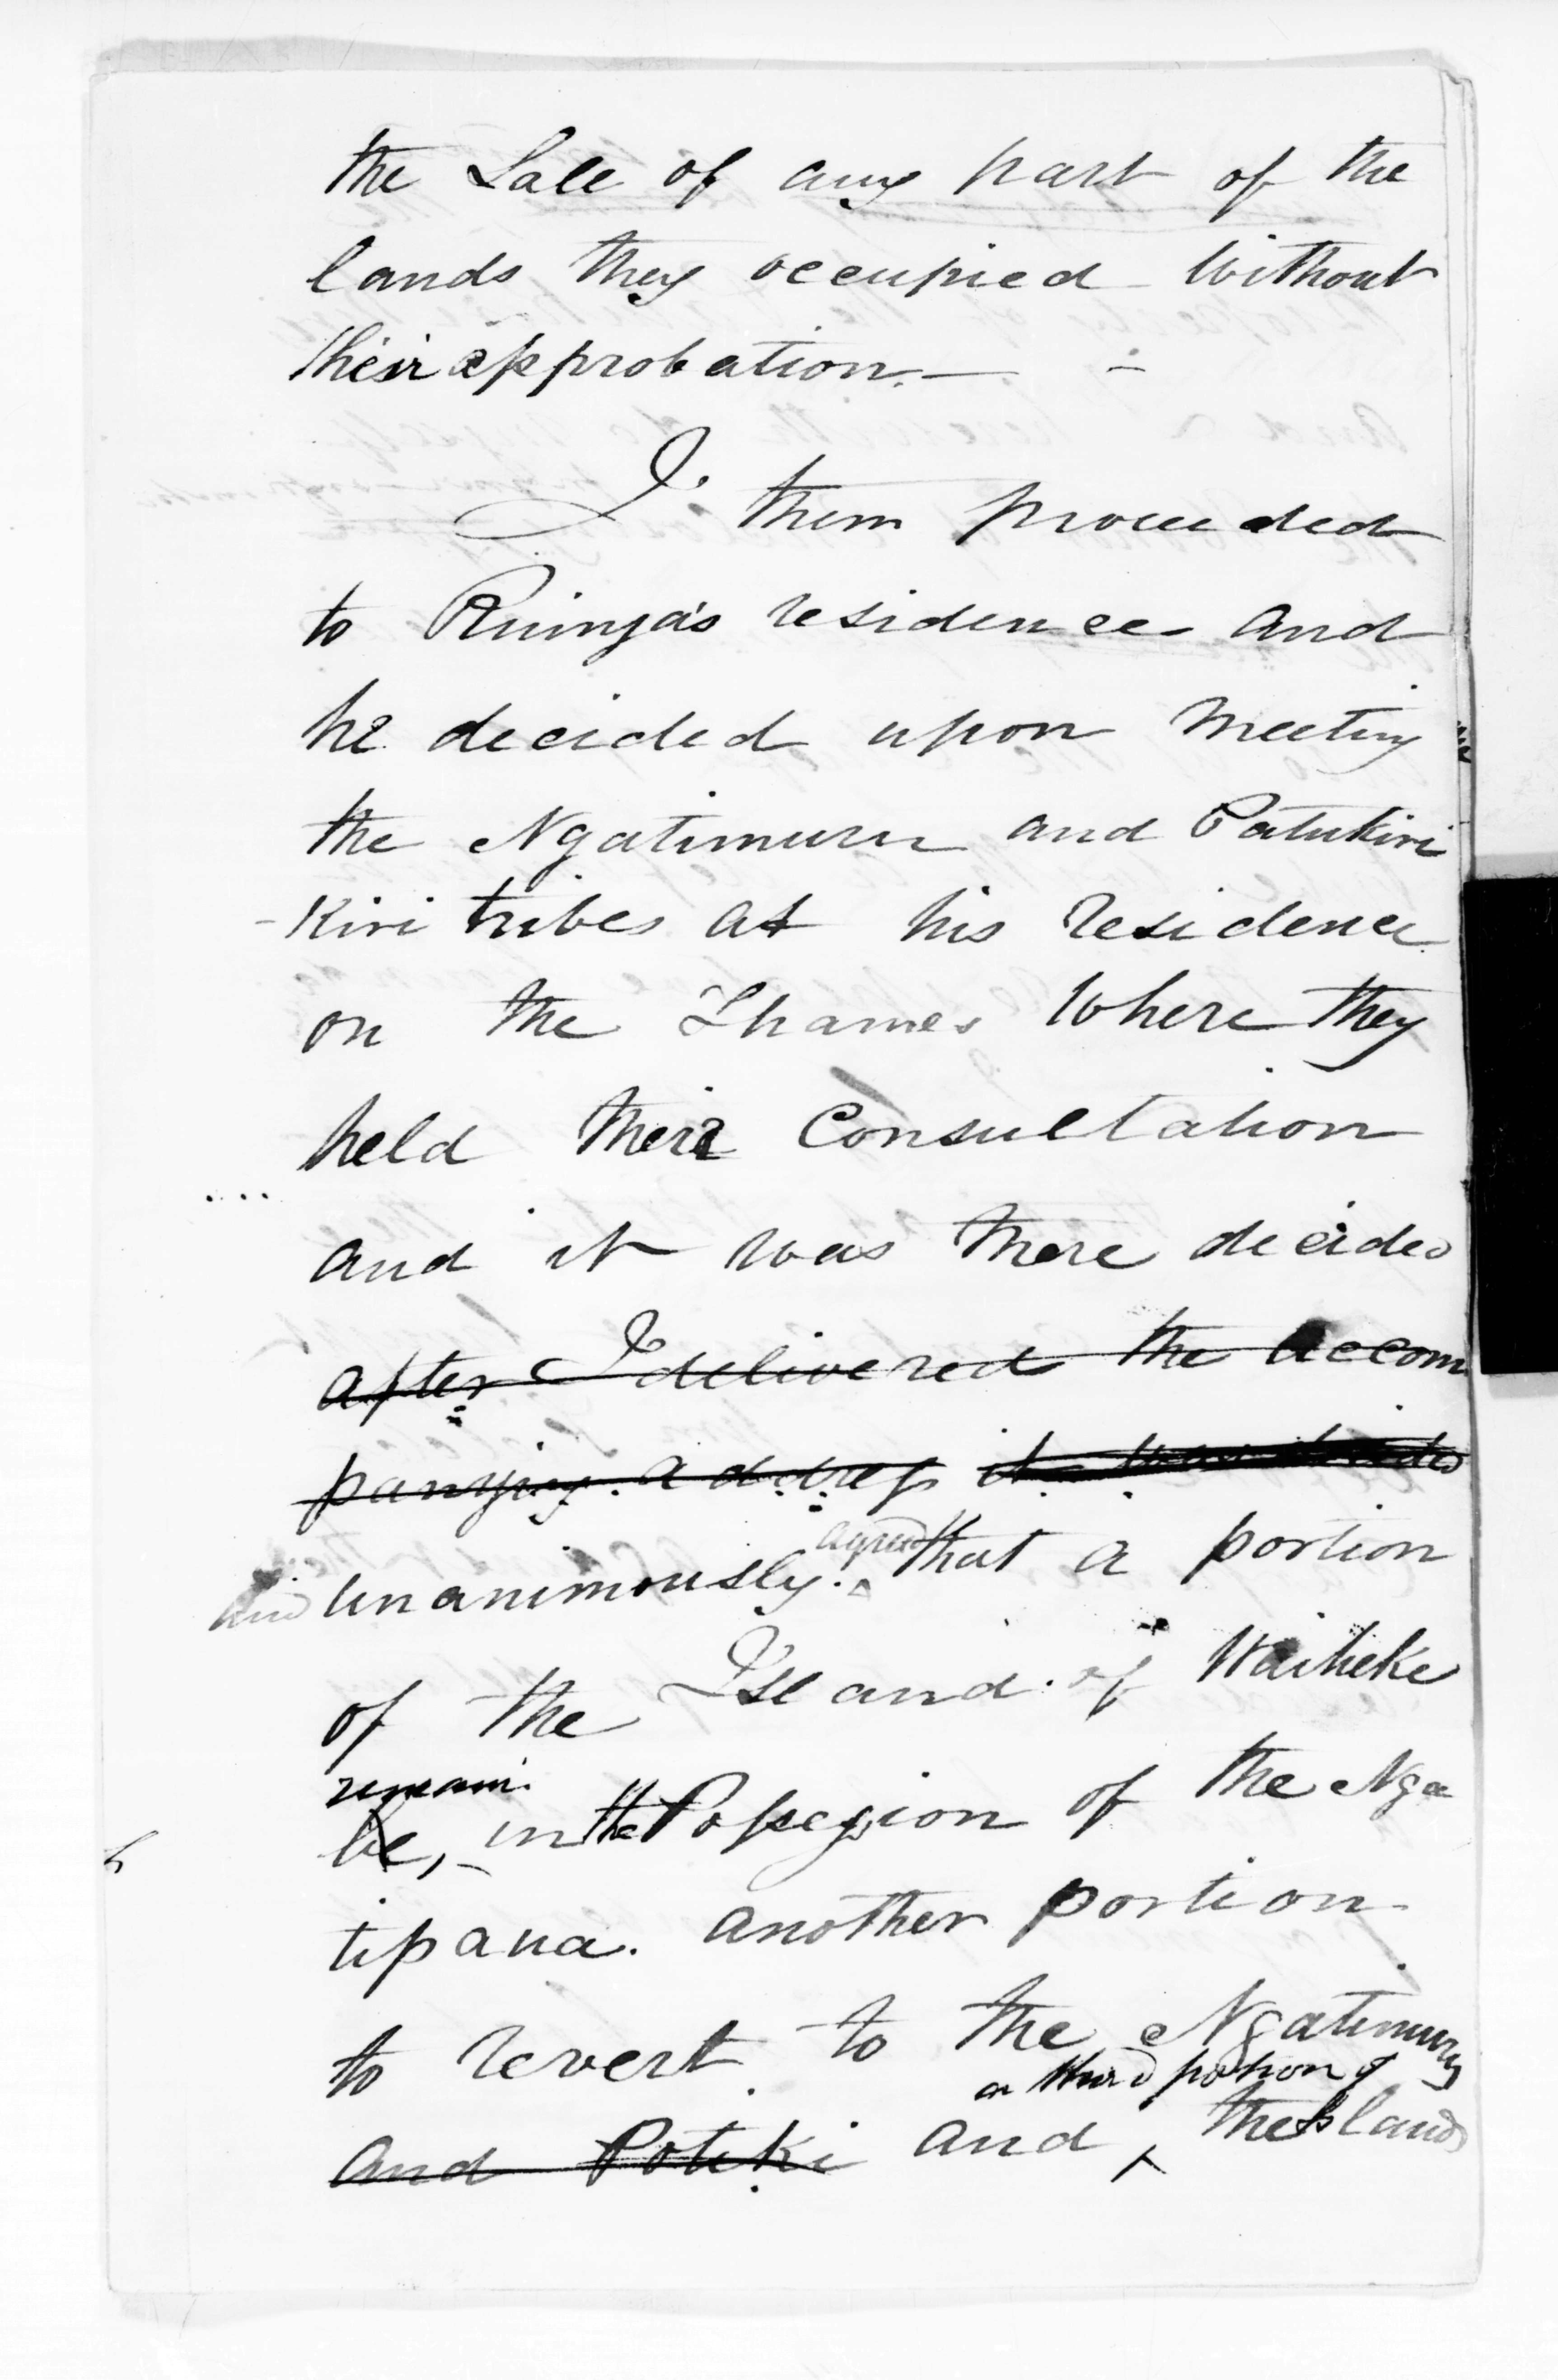 the Sale of any part of the
lands they occupied without
their approbation. —
I then proceeded
to Ruinga's residence and
he decided upon meeting
the Ngatimuru and Patukiri
-Kiri tribes at his residence
on the Thames where they
held their Consultation
and it was there decided
after I delivered the accom
panying address it was decided
and unanimously agreed that a portion
of the Island of Waiheke
remain
be, in the Possession of the Nga
tipaua. another portion
to revert to the Ngatimuru
a third portion of
and Poteki and the Island